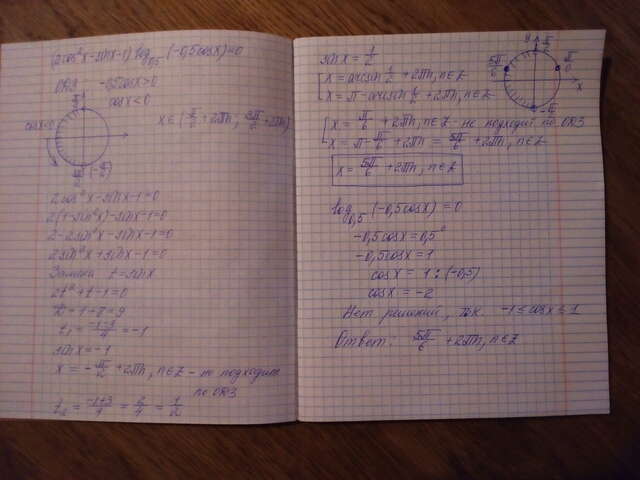 (2cos²x-sinx-1) log₀,₅ (-0,5cosx)=0
ОДЗ -0,5cosx>0
cosx<0
cosx<0
x∈(π/2+2πn; 3π/2+2πn)
2cos²x-sinx-1=0
2(1-sin²x)-sinx-1=0
2-2sin²x-sinx-1=0
2sin²x+sinx-1=0
Замена t=sinx
2t²+t-1=0
D=1+8=9
t₁=(-1-3)/4=-1
sinx=-1
x=-π/2+2πn, n∈Z - не подходит
по ОДЗ
t₂=(-1+3)/4=2/4=1/2
sinx=1/2
x=arcsin 1/2+2πn, n∈Z
x=π-arcsin 1/2+2πn, n∈Z
y
π/2
5π/6
π/6
x
-π/2
x=π/6+2πn, n∈Z - не подходит по ОДЗ
x=π-π/6+2πn=5π/6+2πn, n∈Z
x=5π/6+2πn, n∈Z
log₀,₅ (-0,5cosx)=0
-0,5cosx=0,5⁰
-0,5cosx=1
cosx=1:(-0,5)
cosx=-2
Нет решений, т.к. -1≤cosx≤1
Ответ: 5π/6+2πn, n∈Z